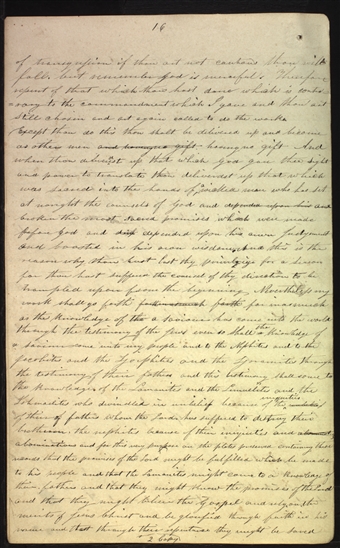 16
of transgression if thou art not cautious thou wilt
fall but remember God is merciful Therefore
repent of that which thou hast done which is contr
ary to the commandment which I gave and thou art
still chosen and art again called to the work
except thou do this thou shalt be delivered up and become
as other men and have no gift And
when thou deliverest up that which God gave thee sight
and power to translate thou deliveredst up that which
was sacred into the hands of a wicked man who has set
at nought the counsels of God and
broken the most promises which were made
before God and depended upon his own judgment
and boasted in his own wisdom and this is the
reason why thou hast lost thy privileges for a season
for thou hast suffered the counsel of thy director to be
trampled upon from the beginning Nevertheless my
work shall go forth for inasmuch
as the knowledge of a Saviour has come into the world
through the testimony of the Jews even so shall the knowledge of
a Saviour come unto my people and to the Nephites and the
Jacobites and the Josephites and the Zoramites through
the testimony of their fathers and this testimony shall come to
the knowledge of the Lamanites and the Lemuelites and the
Ishmaelites who dwindled in unbelief because of the iniquities
of their fathers whom the Lord has suffered to destroy their
brethren the nephites because of their iniquities and
abominations and for this very purpose are the plates preserved containing these
records that the promises of the Lord might be fulfilled which he made
to his people and that the Lamanites might come to a knowledge of
their fathers and that they might know the promises of the Lord
and that they might believe the Gospel and rely upon the
merits of Jesus Christ and be glorified through faith in his
name and that through their repentance they might be saved
2 Copy